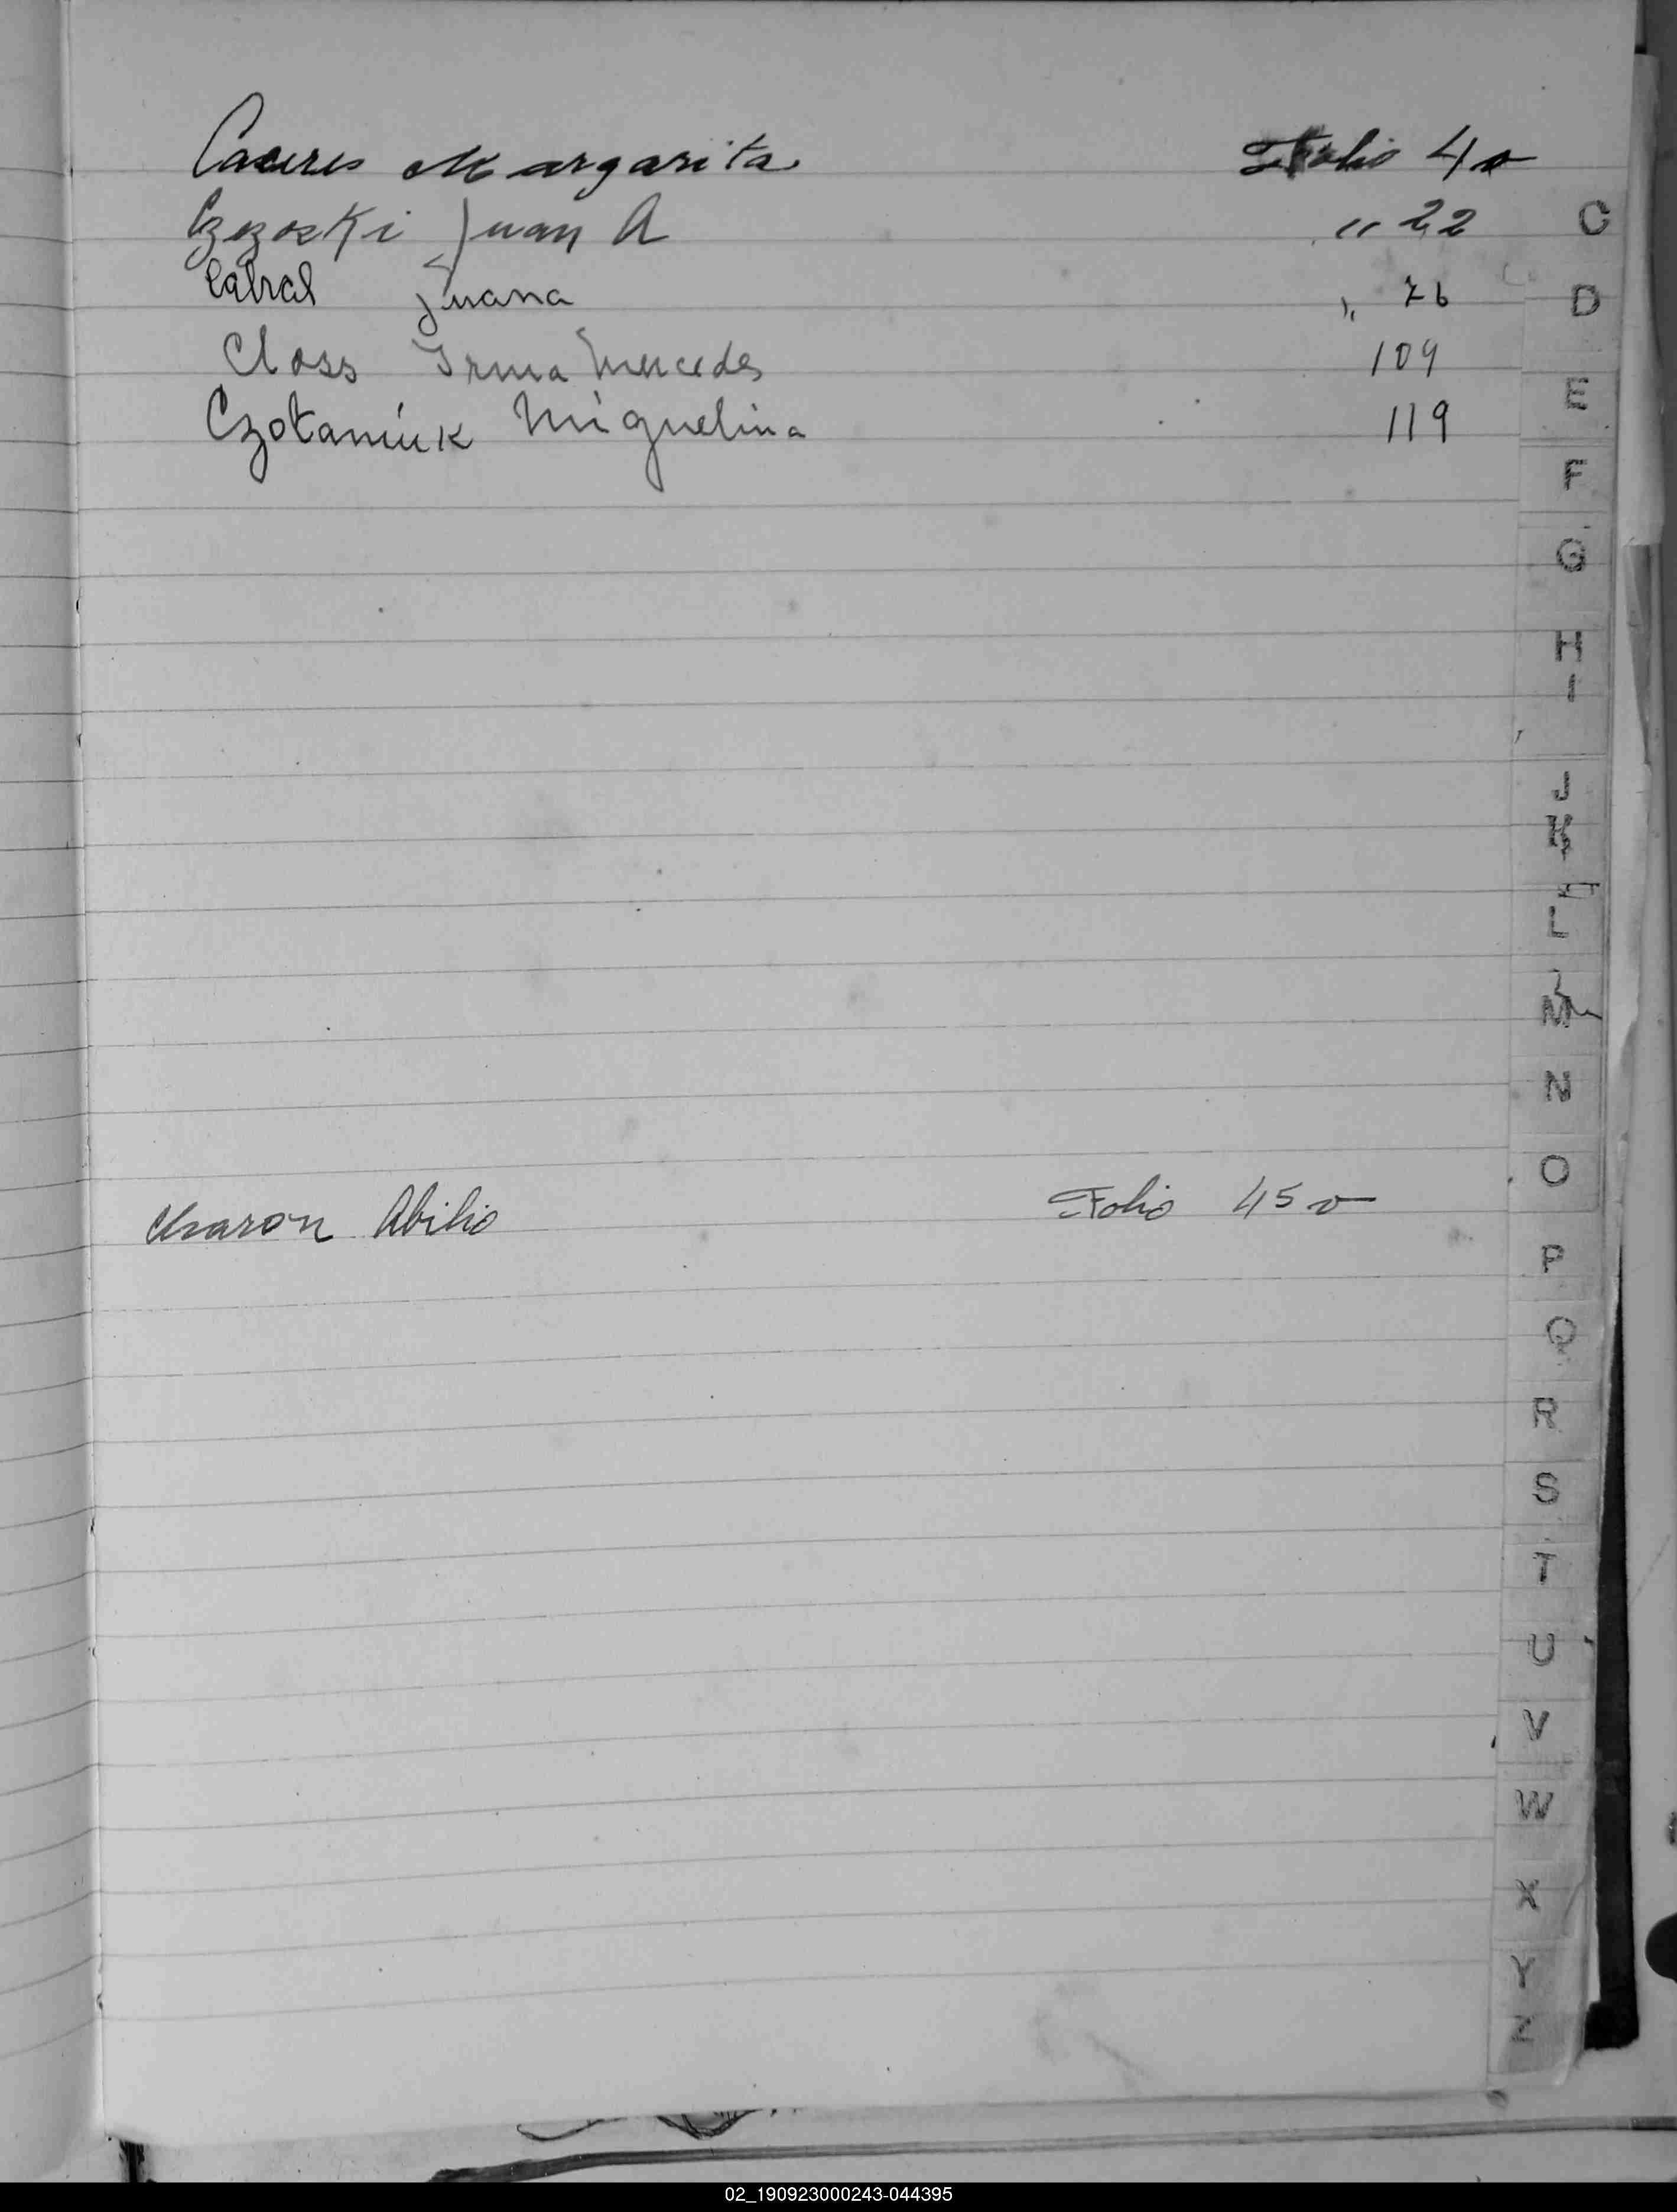 Caceres Margarita Folio 4 v
Czezoski Juan A " 22
C
Cabral Juana " 76
D
Closs Irma Mercedes 109
E
Czotamiuk Miguelina 119
F
G
H
I
J
K
L
M
N
O
Charon Abilio Folio 45 v
P
Q
R
S
T
U
V
W
X
Y
Z
02_190923000243-044395